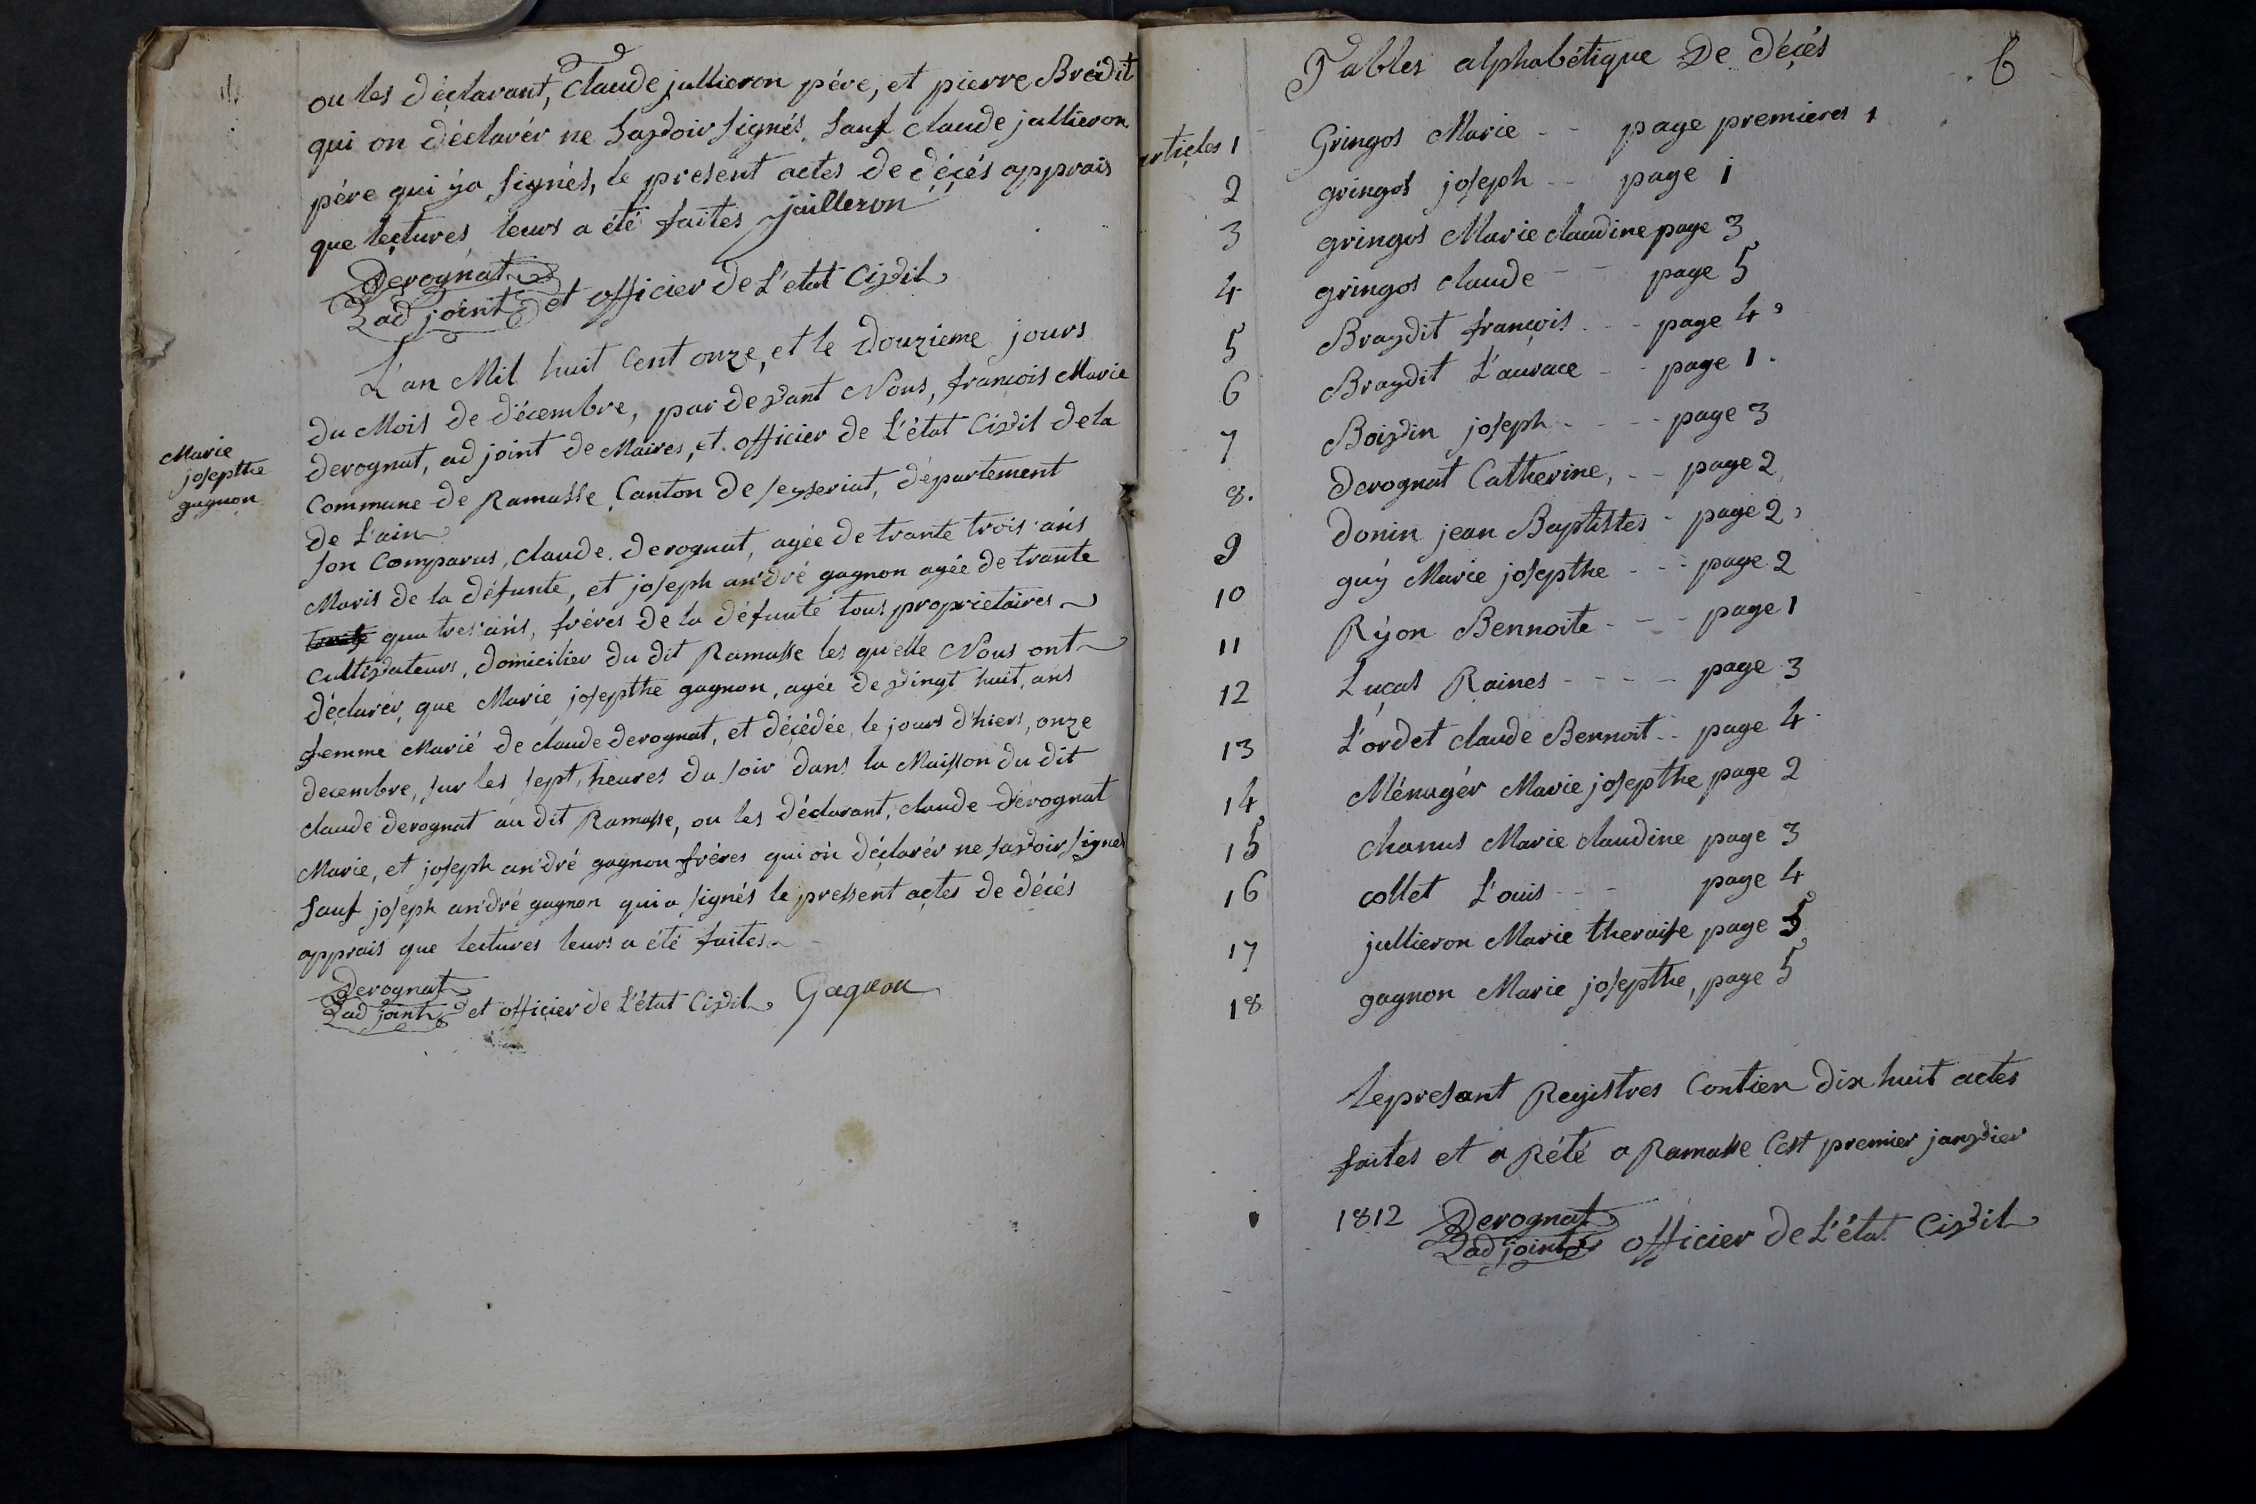 ou les déclarant, Claude jullieron pére, et pierre Brédit
qui on déclarér ne savoir signés sauf claude jullieron
pére qui ÿa signés, le present actes de décés apprais
que lectures leurs a été faites juilleron
Derognat
adjoint et officier de L'etat Civil
L'an Mil huit Cent onze, et le douzieme jours
du Mois de décembre, par devant Nous, françois Marie
derognat, adjoint de Maires, et officier de L'état Civil de la
Commune de Ramasse Canton de seyseriat, département
de L'ain
Marie
josepthe
gagnon
son Comparus, claude derognat, agée de trante trois ans
Maris de la défunte, et joseph andré gagnon agée de trante
quatres ans, fréres de la défunte tous proprietaires
Cultivateurs, domicilier du dit Ramasse les quelle Nous ont
déclarér, que Marie josepthe gagnon, agée de vingt huit ans
femme Marié de claude derognat, et décédée, le jours d'hiers, onze
decembre, sur les sept heures du soir dans la Maisson du dit
claude derognat au dit Ramasse, ou les déclarant, claude dérognat
Marie, et joseph andré gagnon fréres qui on déclarér ne savoir signes
sauf joseph andré gagnon qui a signés le pressent actes de décés
apprais que lectures leurs a été faites
Derognat
adjoint et officier de L'état Civil Gagnon
Tables alphabétique De décés
6
articles 1 Gringos Marie - - page premieres 1
2 gringos joseph - - page 1
3 gringos Marie claudine page 3
4 gringos claude - - page 5
5 Bravdit françois - - - page 4
6 Bravdit L'aurace - - page 1
7 Boivin joseph - - - - page 3
8. derognat Catherine, - - page 2
9 donin jean Baptistes - page 2
10 guÿ Marie josepthe - - - page 2
11 Rÿon Bennoite - - - page 1
12 Luças Raines - - - - page 3
13 L'ordet claude Bennoit - - page 4
14 Ménagér Marie josepthe page 2
15 chanus Marie claudine page 3
16 collet L'ouis - - - page 4
17 jullieron Marie theraise page 5
18 gagnon Marie josepthe, page 5
le presant Registres Contien dix huit actes
faites et a Rété a Ramasse Cest premier janvier
1812 Derognat
adjoint officier de L'état Civil